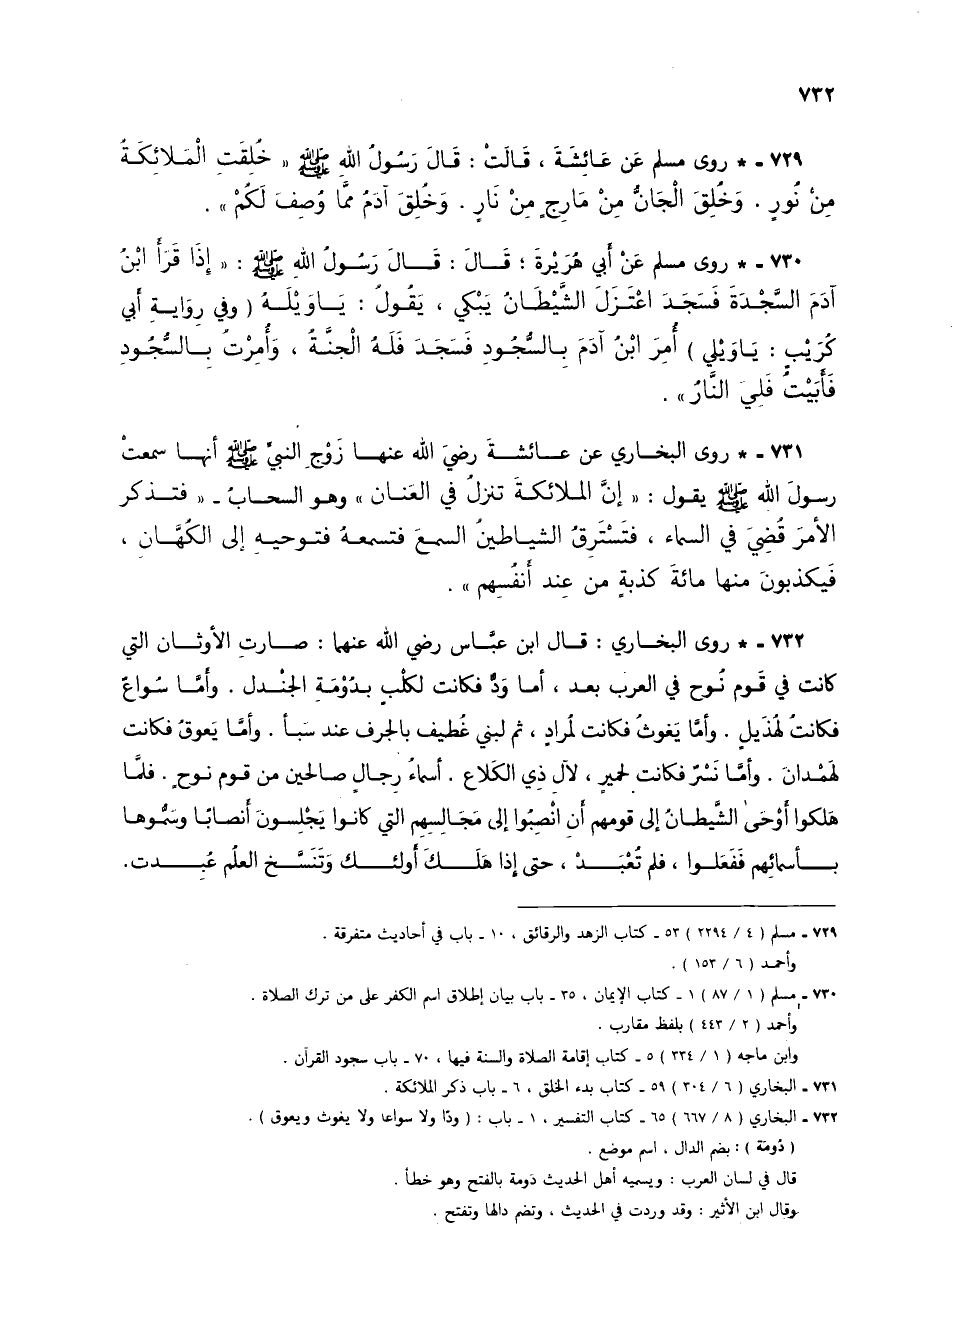 ٧٣٢
٧٢٩ - * روى مسلم عَن عَائِشَةَ ، قَالَتْ : قَالَ رَسُولُ اللهِ ﷺ « خُلِقَتِ الْمَلائِكَةُ
مِنْ نُورٍ . وَخُلِقَ الْجَانُّ مِنْ مَارِجٍ مِنْ نَارٍ . وَخُلِقَ آدَمُ مِمَّا وُصِفَ لَكُمْ » .
٧٣٠ - * روى مسلم عَنْ أبي هُرَيْرةَ ؛ قَالَ : قَالَ رَسُولُ اللهِ ﷺ : « إِذَا قَرَأَ ابْنُ
آدَمَ السَّجْدَةَ فَسَجَدَ اعْتَزَلَ الشَّيْطَانُ يَبْكِي ، يَقُولُ : يَاوَيْلَهُ ( وفي روايةِ أبي
كُرَيْبٍ : يَاوَيْلي ) أُمِرَ ابْنُ آدَمَ بِالسُّجُودِ فَسَجَدَ فَلَهُ الْجنَّةُ ، وَأُمِرْتُ بِالسُّجُودِ
فَأَبَيْتُ فَلِيَ النَّارُ » .
٧٣١ - * روى البخاري عن عائشةَ رضيَ الله عنها زَوْجِ النبيِّ ﷺ أنها سمعتْ
رسولَ الله ﷺ يقول : « إنَّ الملائكةَ تنزلُ في العَنان » وهو السحابُ - « فتذكر
الأمرَ قُضِيَ في السماء ، فَتَسْتَرِقُ الشياطينُ السمعَ فتسمعهُ فتوحيهِ إلى الكُهَّان ،
فَيكذبونَ منها مائةَ كذبةٍ من عِند أَنفُسِهم » .
٧٣٢ - * روى البخاري : قال ابن عبَّاس رضي الله عنهما : صارتِ الأوثان التي
كانت في قَومِ نُوح في العرب بعد ، أما وَدُّ فكانت لكلْبٍ بدُوْمَةِ الجنْدل . وأمَّا سُواعٌ
فكانتْ لهُذَيلٍ . وأمَّا يَغوثُ فكانت لُمرادٍ ، ثم لبني غُطيف بالجرف عند سَبأ . وأمَّا يَعوقُ فكانت
لهَمْدانَ . وأمَّا نَسْرٌ فكانت لحميرٍ ، لآل ذي الكَلاع . أسماءُ رجالٍ صالحين من قومِ نوحٍ . فلمَّا
هَلكوا أوْحَىٰ الشَّيطانُ إلى قومهم أن انْصِبُوا إلى مَجَالسهم التي كانوا يَجْلِسونَ أنصابًا وسَمُّوها
بأسمائهم فَفَعلوا ، فلم تُعْبَدْ ، حتى إذا هَلَكَ أولئك وَتَنَسَّخ العلْم عُبدت.
٧٢٩ - مسلم ( ٤ / ٢٢٩٤ ) ٥٣ - كتاب الزهد والرقائق ، ١٠ - باب في أحاديث متفرقة .
وأحمد ( ٦ / ١٥٣ ) .
٧٣٠ - مسلم ( ١ / ٨٧ ) ١ - كتاب الإيمان ، ٣٥ - باب بيان إطلاق اسم الكفر على من ترك الصلاة .
وأحمد ( ٢ / ٤٤٣ ) بلفظ مقارب .
وابن ماجه ( ١ / ٣٣٤ ) ٥ - كتاب إقامة الصلاة والسنة فيها ، ٧٠ - باب سجود القرآن .
٧٣١ - البخاري ( ٦ / ٣٠٤ ) ٥٩ - كتاب بدء الخلق ، ٦ - باب ذكر الملائكة .
٧٣٢ - البخاري ( ٨ / ٦٦٧ ) ٦٥ - كتاب التفسير ، ١ - باب : ( ودّا ولا سواعا ولا يغوث ويعوق ) .
( دُومَة ) : بضم الدال ، اسم موضع .
قال في لسان العرب : ويسميه أهل الحديث دَومة بالفتح وهو خطأ .
وقال ابن الأثير : وقد وردت في الحديث ، وتضم دالها وتفتح .